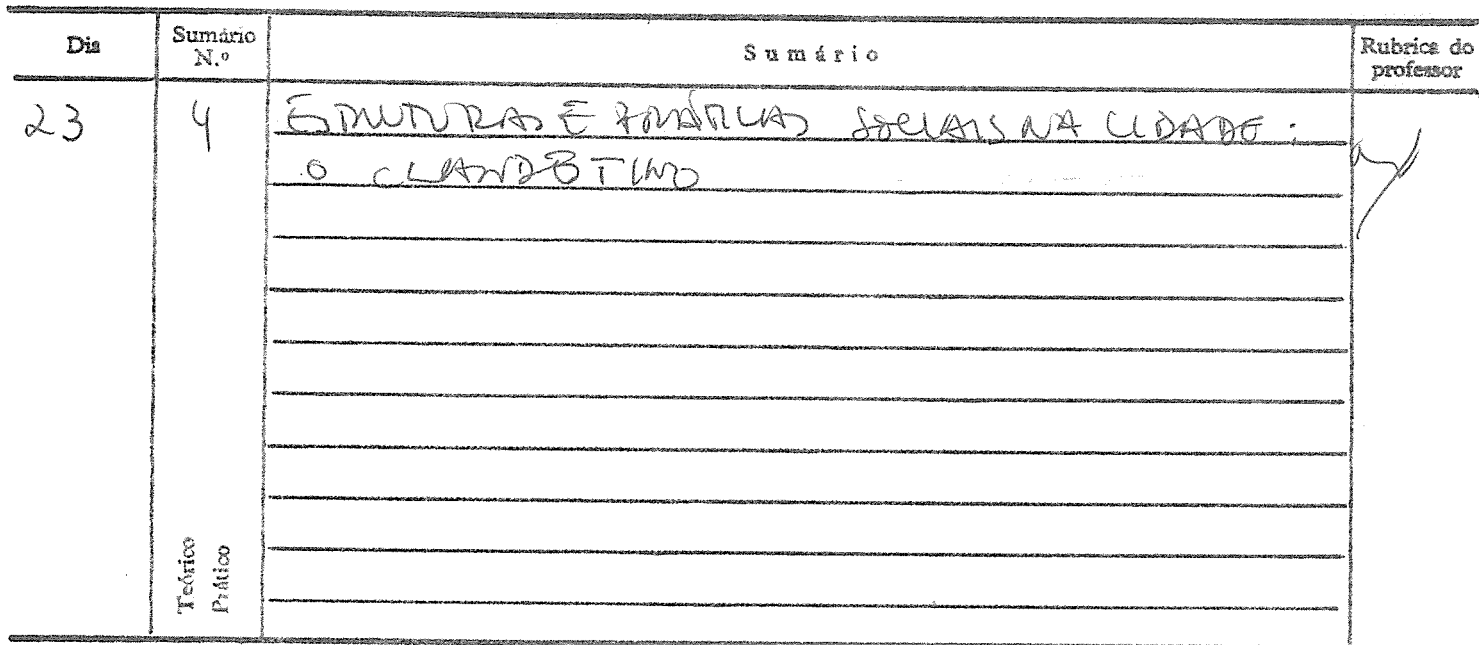 Dia
Sumário N.º
Sumário
Rubrica do professor
23
4
ESTRUTURAS E PRÁTICAS SOCIAIS NA CIDADE:
O CLANDESTINO
Teórico
Prático